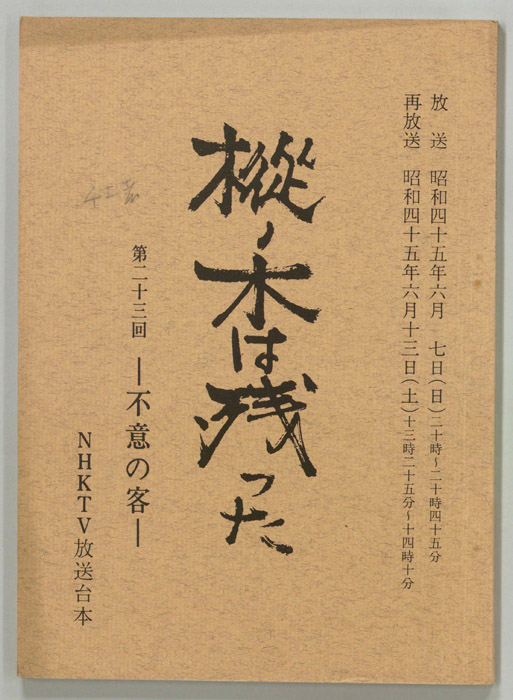 放　送　昭和四十五年六月　七日(日)二十時~二十時四十五分
再放送　昭和四十五年六月十三日(土)十三時二十五分~十四時十分
樅ノ木は残った
第二十三回　―不意の客―
NHKTV放送台本